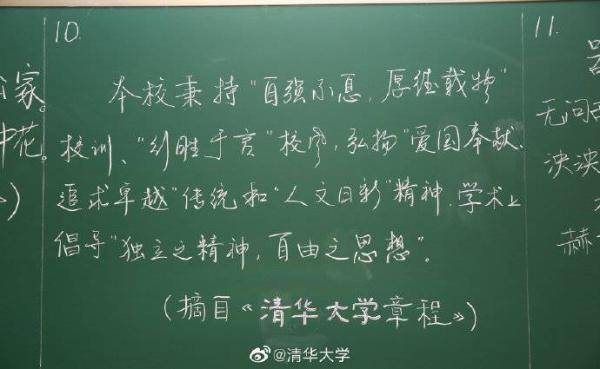 10.
本校秉持“自强不息,厚德载物”
校训、“行胜于言”校风,弘扬“爱国奉献、
追求卓越”传统和“人文日新”精神,学术上
倡导“独立之精神,自由之思想”。
(摘自《清华大学章程》)
家。
花。
)
11.
无问
泱泱
赫
@清华大学